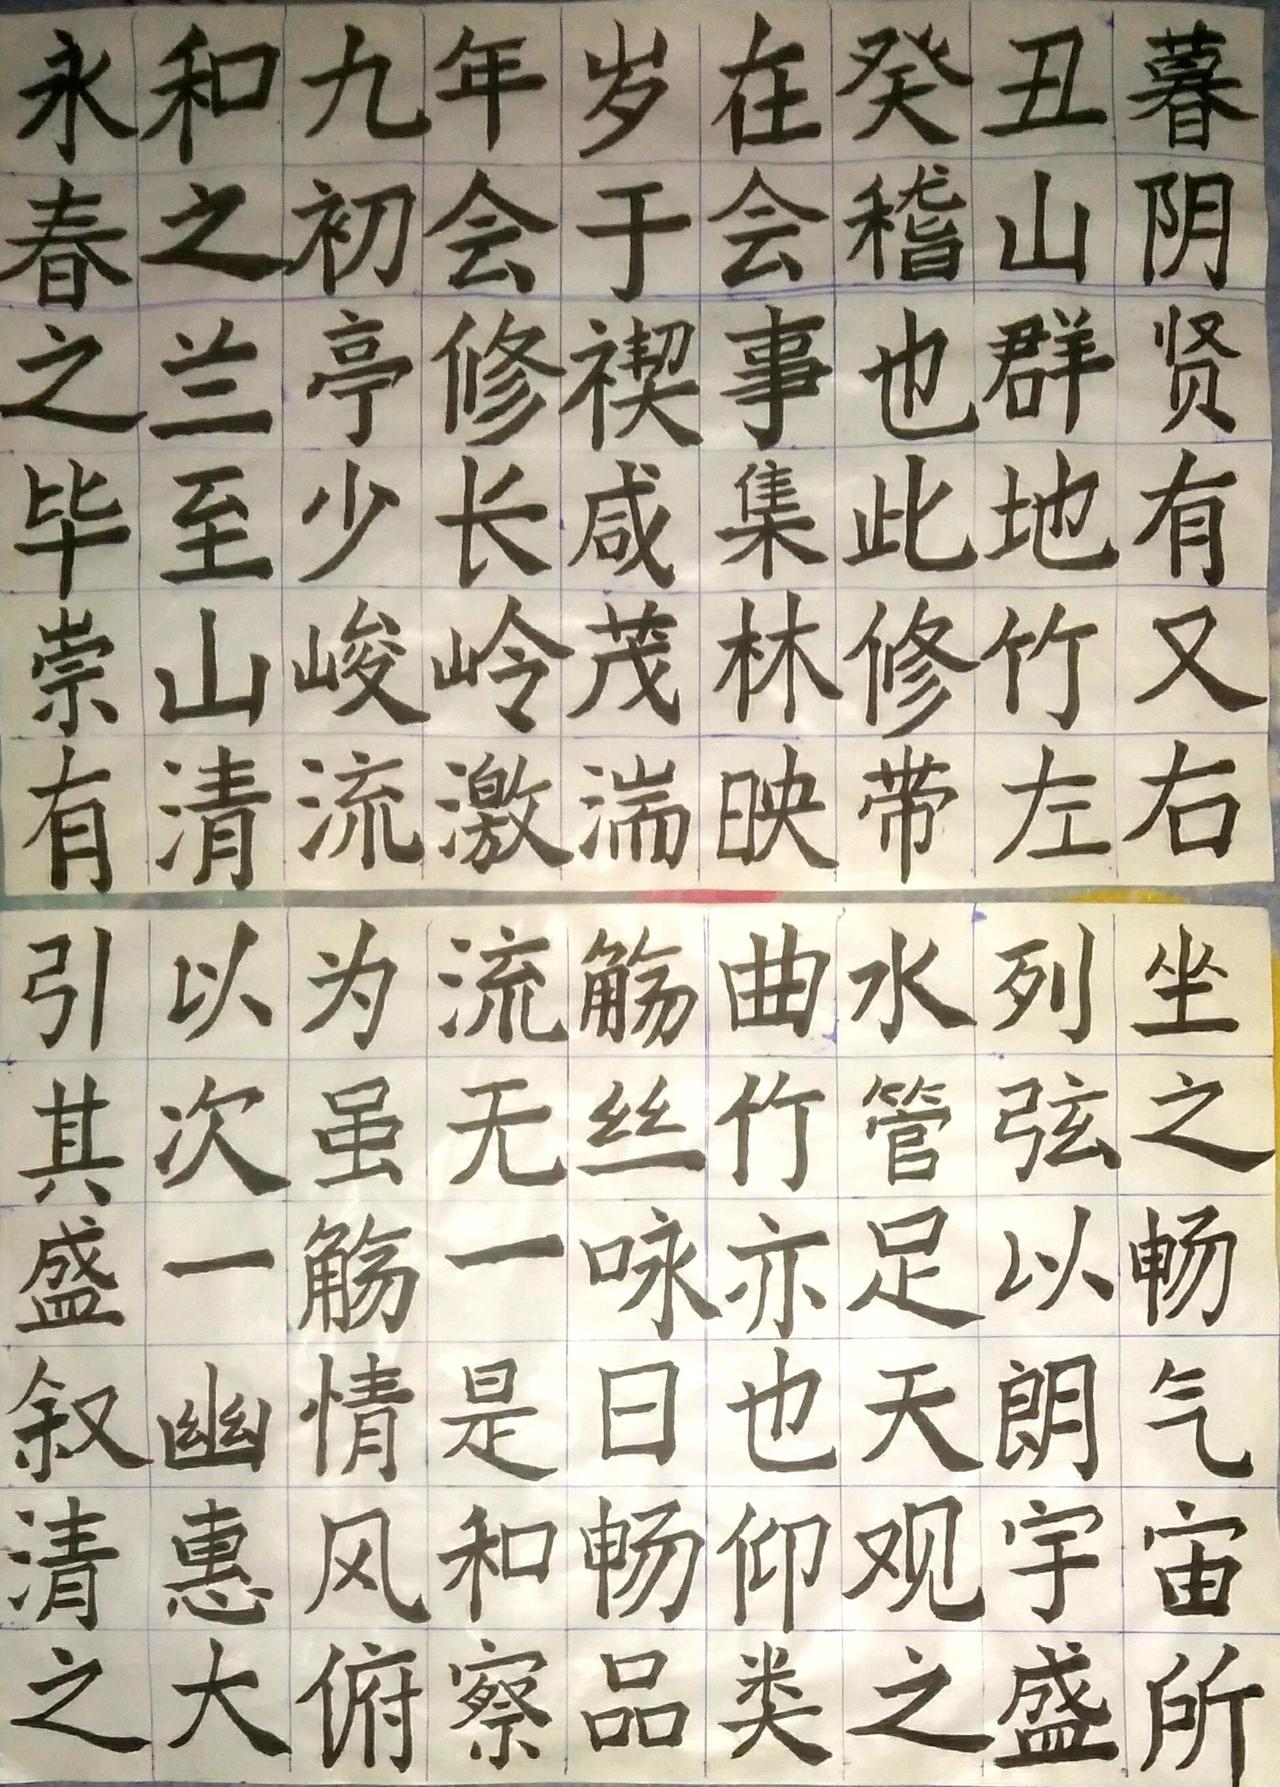 永和九年岁在癸丑暮
春之初会于会稽山阴
之兰亭修禊事也群贤
毕至少长咸集此地有
崇山峻岭茂林修竹又
有清流激湍映带左右
引以为流觞曲水列坐
其次虽无丝竹管弦之
盛一觞一咏亦足以畅
叙幽情是日也天朗气
清惠风和畅仰观宇宙
之大俯察品类之盛所